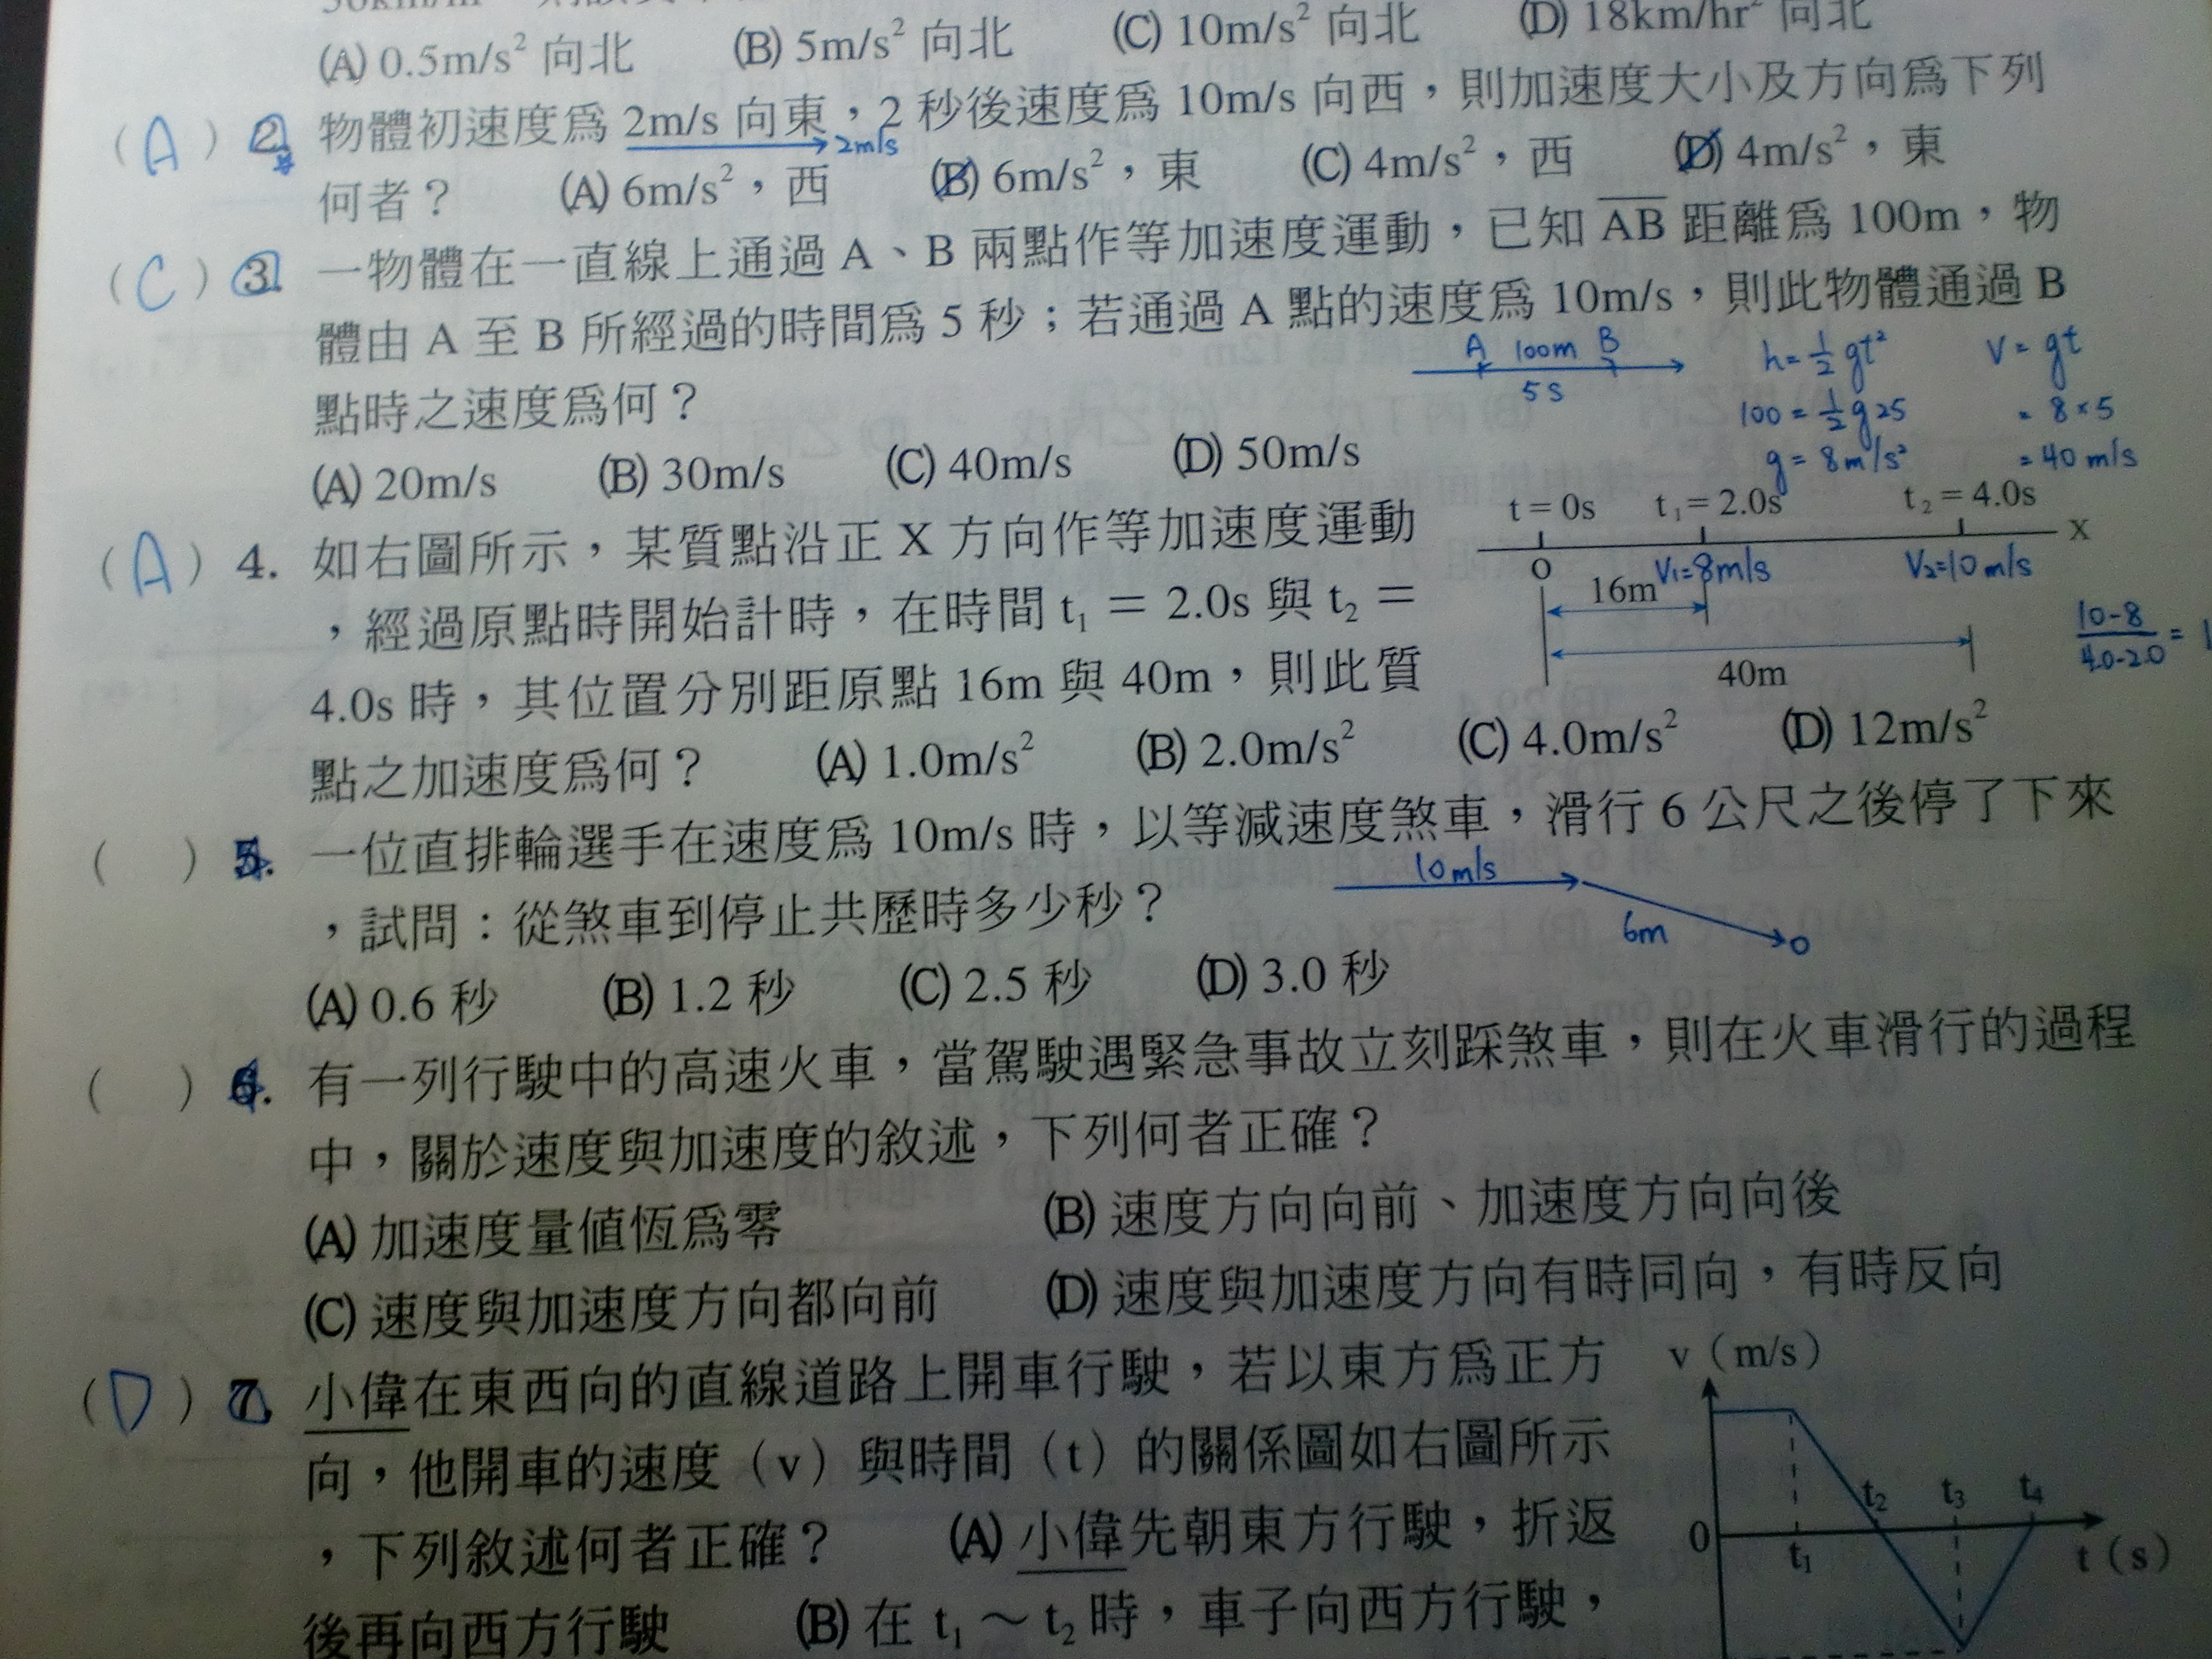 (A) 0.5m/s² 向北 (B) 5m/s² 向北 (C) 10m/s² 向北 (D) 18km/hr² 向北
( A ) 2. 物體初速度爲 2m/s 向東，2 秒後速度爲 10m/s 向西，則加速度大小及方向爲下列
2m/s
何者？ (A) 6m/s²，西 (B) 6m/s²，東 (C) 4m/s²，西 (D) 4m/s²，東
( C ) 3. 一物體在一直線上通過 A、B 兩點作等加速度運動，已知 A̅B̅ 距離爲 100m，物
體由 A 至 B 所經過的時間爲 5 秒；若通過 A 點的速度爲 10m/s，則此物體通過 B
點時之速度爲何？
A 100m B
5s
h = ½ gt² v = gt
100 = ½ g 25 = 8 × 5
g = 8m/s² = 40 m/s
(A) 20m/s (B) 30m/s (C) 40m/s (D) 50m/s
( A ) 4. 如右圖所示，某質點沿正 X 方向作等加速度運動
，經過原點時開始計時，在時間 t₁ ＝ 2.0s 與 t₂ ＝
4.0s 時，其位置分別距原點 16m 與 40m，則此質
點之加速度爲何？ (A) 1.0m/s² (B) 2.0m/s² (C) 4.0m/s² (D) 12m/s²
t = 0s t₁ = 2.0s t₂ = 4.0s
X
O V₁=8m/s V₂=10m/s
16m
40m
10-8
4.0-2.0 = 1
( ) 5. 一位直排輪選手在速度爲 10m/s 時，以等減速度煞車，滑行 6 公尺之後停了下來
，試問：從煞車到停止共歷時多少秒？
10m/s
6m
(A) 0.6 秒 (B) 1.2 秒 (C) 2.5 秒 (D) 3.0 秒
( ) 6. 有一列行駛中的高速火車，當駕駛遇緊急事故立刻踩煞車，則在火車滑行的過程
中，關於速度與加速度的敘述，下列何者正確？
(A) 加速度量値恆爲零 (B) 速度方向向前、加速度方向向後
(C) 速度與加速度方向都向前 (D) 速度與加速度方向有時同向，有時反向
( D ) 7. 小偉在東西向的直線道路上開車行駛，若以東方爲正方
向，他開車的速度（v）與時間（t）的關係圖如右圖所示
，下列敘述何者正確？ (A) 小偉先朝東方行駛，折返
後再向西方行駛 (B) 在 t₁～t₂ 時，車子向西方行駛，
v（m/s）
t₂ t₃ t₄
0 t₁ t（s）